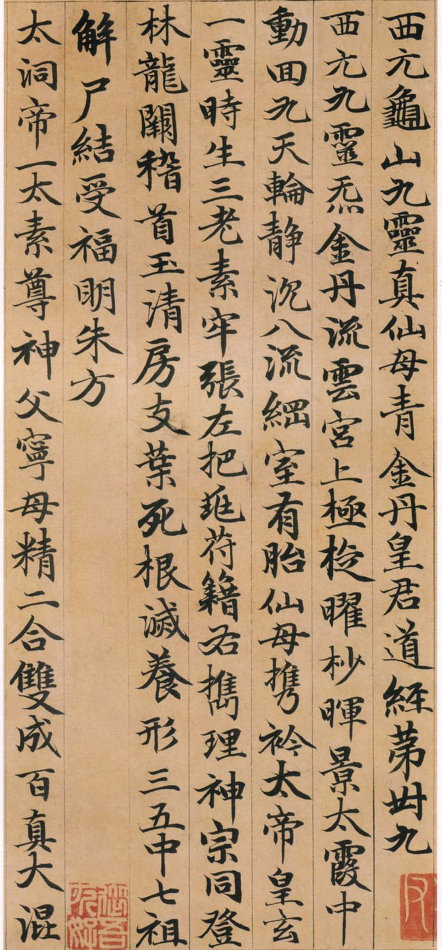 西亢龜山九靈真仙母青金丹皇君道經苐卅九
西亢九靈炁金丹流雲宮上極挖曜杪暉景太霞中
動回九天輪静沉八流綑室有胎仙母携衿太帝皇玄
一靈時生三老素牢張左把苻籍右携理神宗同登
林龍闕稽首玉清房支葉死根滅養形三五中七祖
解尸結受福明朱方
太洞帝一太素尊神父寧母精二合雙成百真大混